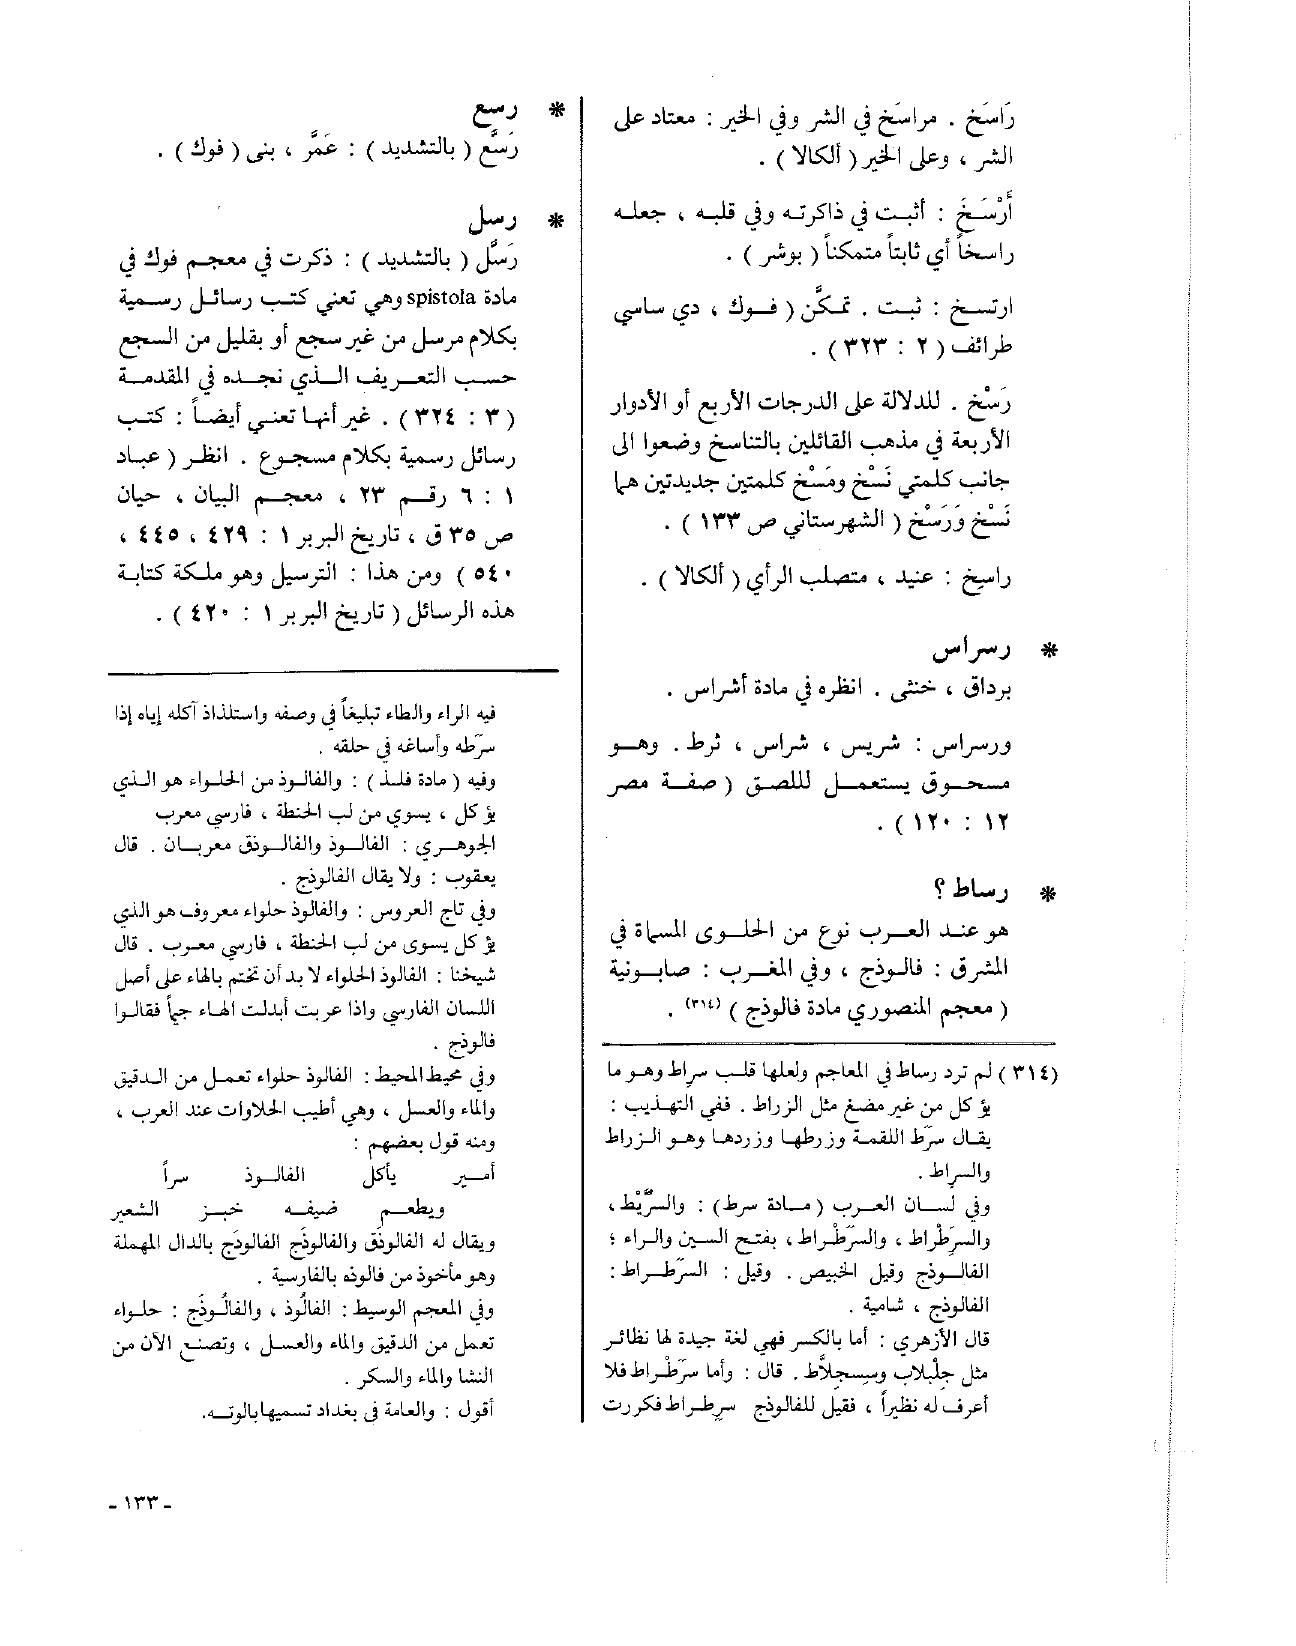 رَاسَخ . مراسَخ في الشر وفي الخير : معتاد على
الشر ، وعلى الخير ( ألكالا ) .
أَرْسَخَ : أثبت في ذاكرته وفي قلبه ، جعله
راسخاً أي ثابتاً متمكناً ( بوشر ) .
ارتسخ : ثبت . تمكَّن ( فوك ، دي ساسي
طرائف ( ٢ : ٣٢٣ ) .
رَسْخ . للدلالة على الدرجات الأربع أو الأدوار
الأربعة في مذهب القائلين بالتناسخ وضعوا الى
جانب كلمتي نَسْخ ومَسْخ كلمتين جديدتين هما
نَسْخ وَرَسْخ ( الشهرستاني ص ١٣٣ ) .
راسِخ : عنيد ، متصلب الرأي ( ألكالا ) .
* رسراس
برداق ، خنثى . انظره في مادة أشراس .
ورسراس : شريس ، شراس ، ثرط . وهو
مسحوق يستعمل لللصق ( صفة مصر
١٢ : ١٢٠ ) .
* رساط ؟
هو عند العرب نوع من الحلوى المسماة في
المشرق : فالوذج ، وفي المغرب : صابونية
( معجم المنصوري مادة فالوذج ) (٣١٤) .
(٣١٤) لم ترد رساط في المعاجم ولعلها قلب سراط وهو ما
يؤكل من غير مضغ مثل الزراط . ففي التهذيب :
يقال سرّط اللقمة وزرطها وزردها وهو الزراط
والسراط .
وفي لسان العرب ( مادة سرط ) : والسُّرَّيْط ،
والسِّرِطْراط ، والسَّرَطْراط ، بفتح السين والراء ؛
الفالوذج وقيل الخبيص . وقيل : السَّرَطْراط :
الفالوذج ، شامية .
قال الأزهري : أما بالكسر فهي لغة جيدة لها نظائر
مثل جلْبلاب وسِجلاَّط . قال : وأما سرَطْراط فلا
أعرف له نظيراً ، فقيل للفالوذج سرطراط فكررت
* رسع
رَسَّع ( بالتشديد ) : عَمَّر ، بنى ( فوك ) .
* رسل
رَسَّل ( بالتشديد ) : ذكرت في معجم فوك في
مادة spistola وهي تعني كتب رسائل رسمية
بكلام مرسل من غير سجع أو بقليل من السجع
حسب التعريف الذي نجده في المقدمة
( ٣ : ٣٢٤ ) . غير أنها تعني أيضاً : كتب
رسائل رسمية بكلام مسجوع . انظر ( عباد
١ : ٦ رقم ٢٣ ، معجم البيان ، حيان
ص ٣٥ ق ، تاريخ البربر ١ : ٤٢٩ ، ٤٤٥ ،
٥٤٠ ) ومن هذا : الترسيل وهو ملكة كتابة
هذه الرسائل ( تاريخ البربر ١ : ٤٢٠ ) .
فيه الراء والطاء تبليغاً في وصفه واستلذاذ آكله إياه إذا
سرّطه وأساغه في حلقه .
وفيه ( مادة فلذ ) : والفالوذ من الحلواء هو الذي
يؤكل ، يسوي من لب الحنطة ، فارسي معرب
الجوهري : الفالوذ والفالوذق معربان . قال
يعقوب : ولا يقال الفالوذج .
وفي تاج العروس : والفالوذ حلواء معروف هو الذي
يؤكل يسوى من لب الحنطة ، فارسي معرب . قال
شيخنا : الفالوذ الحلواء لا بد أن تختم بالهاء على أصل
اللسان الفارسي واذا عربت أبدلت الهاء جيماً فقالوا
فالوذج .
وفي محيط المحيط : الفالوذ حلواء تعمل من الدقيق
والماء والعسل ، وهي أطيب الحلاوات عند العرب ،
ومنه قول بعضهم :
أمير يأكل الفالوذ سراً
ويطعم ضيفه خبز الشعير
ويقال له الفالوذق والفالوذج الفالوذج بالدال المهملة
وهو مأخوذ من فالوذه بالفارسية .
وفي المعجم الوسيط : الفالُوذ ، والفالُوذَج : حلواء
تعمل من الدقيق والماء والعسل ، وتصنع الآن من
النشا والماء والسكر .
أقول : والعامة في بغداد تسميها بالوته.
- ١٣٣ -